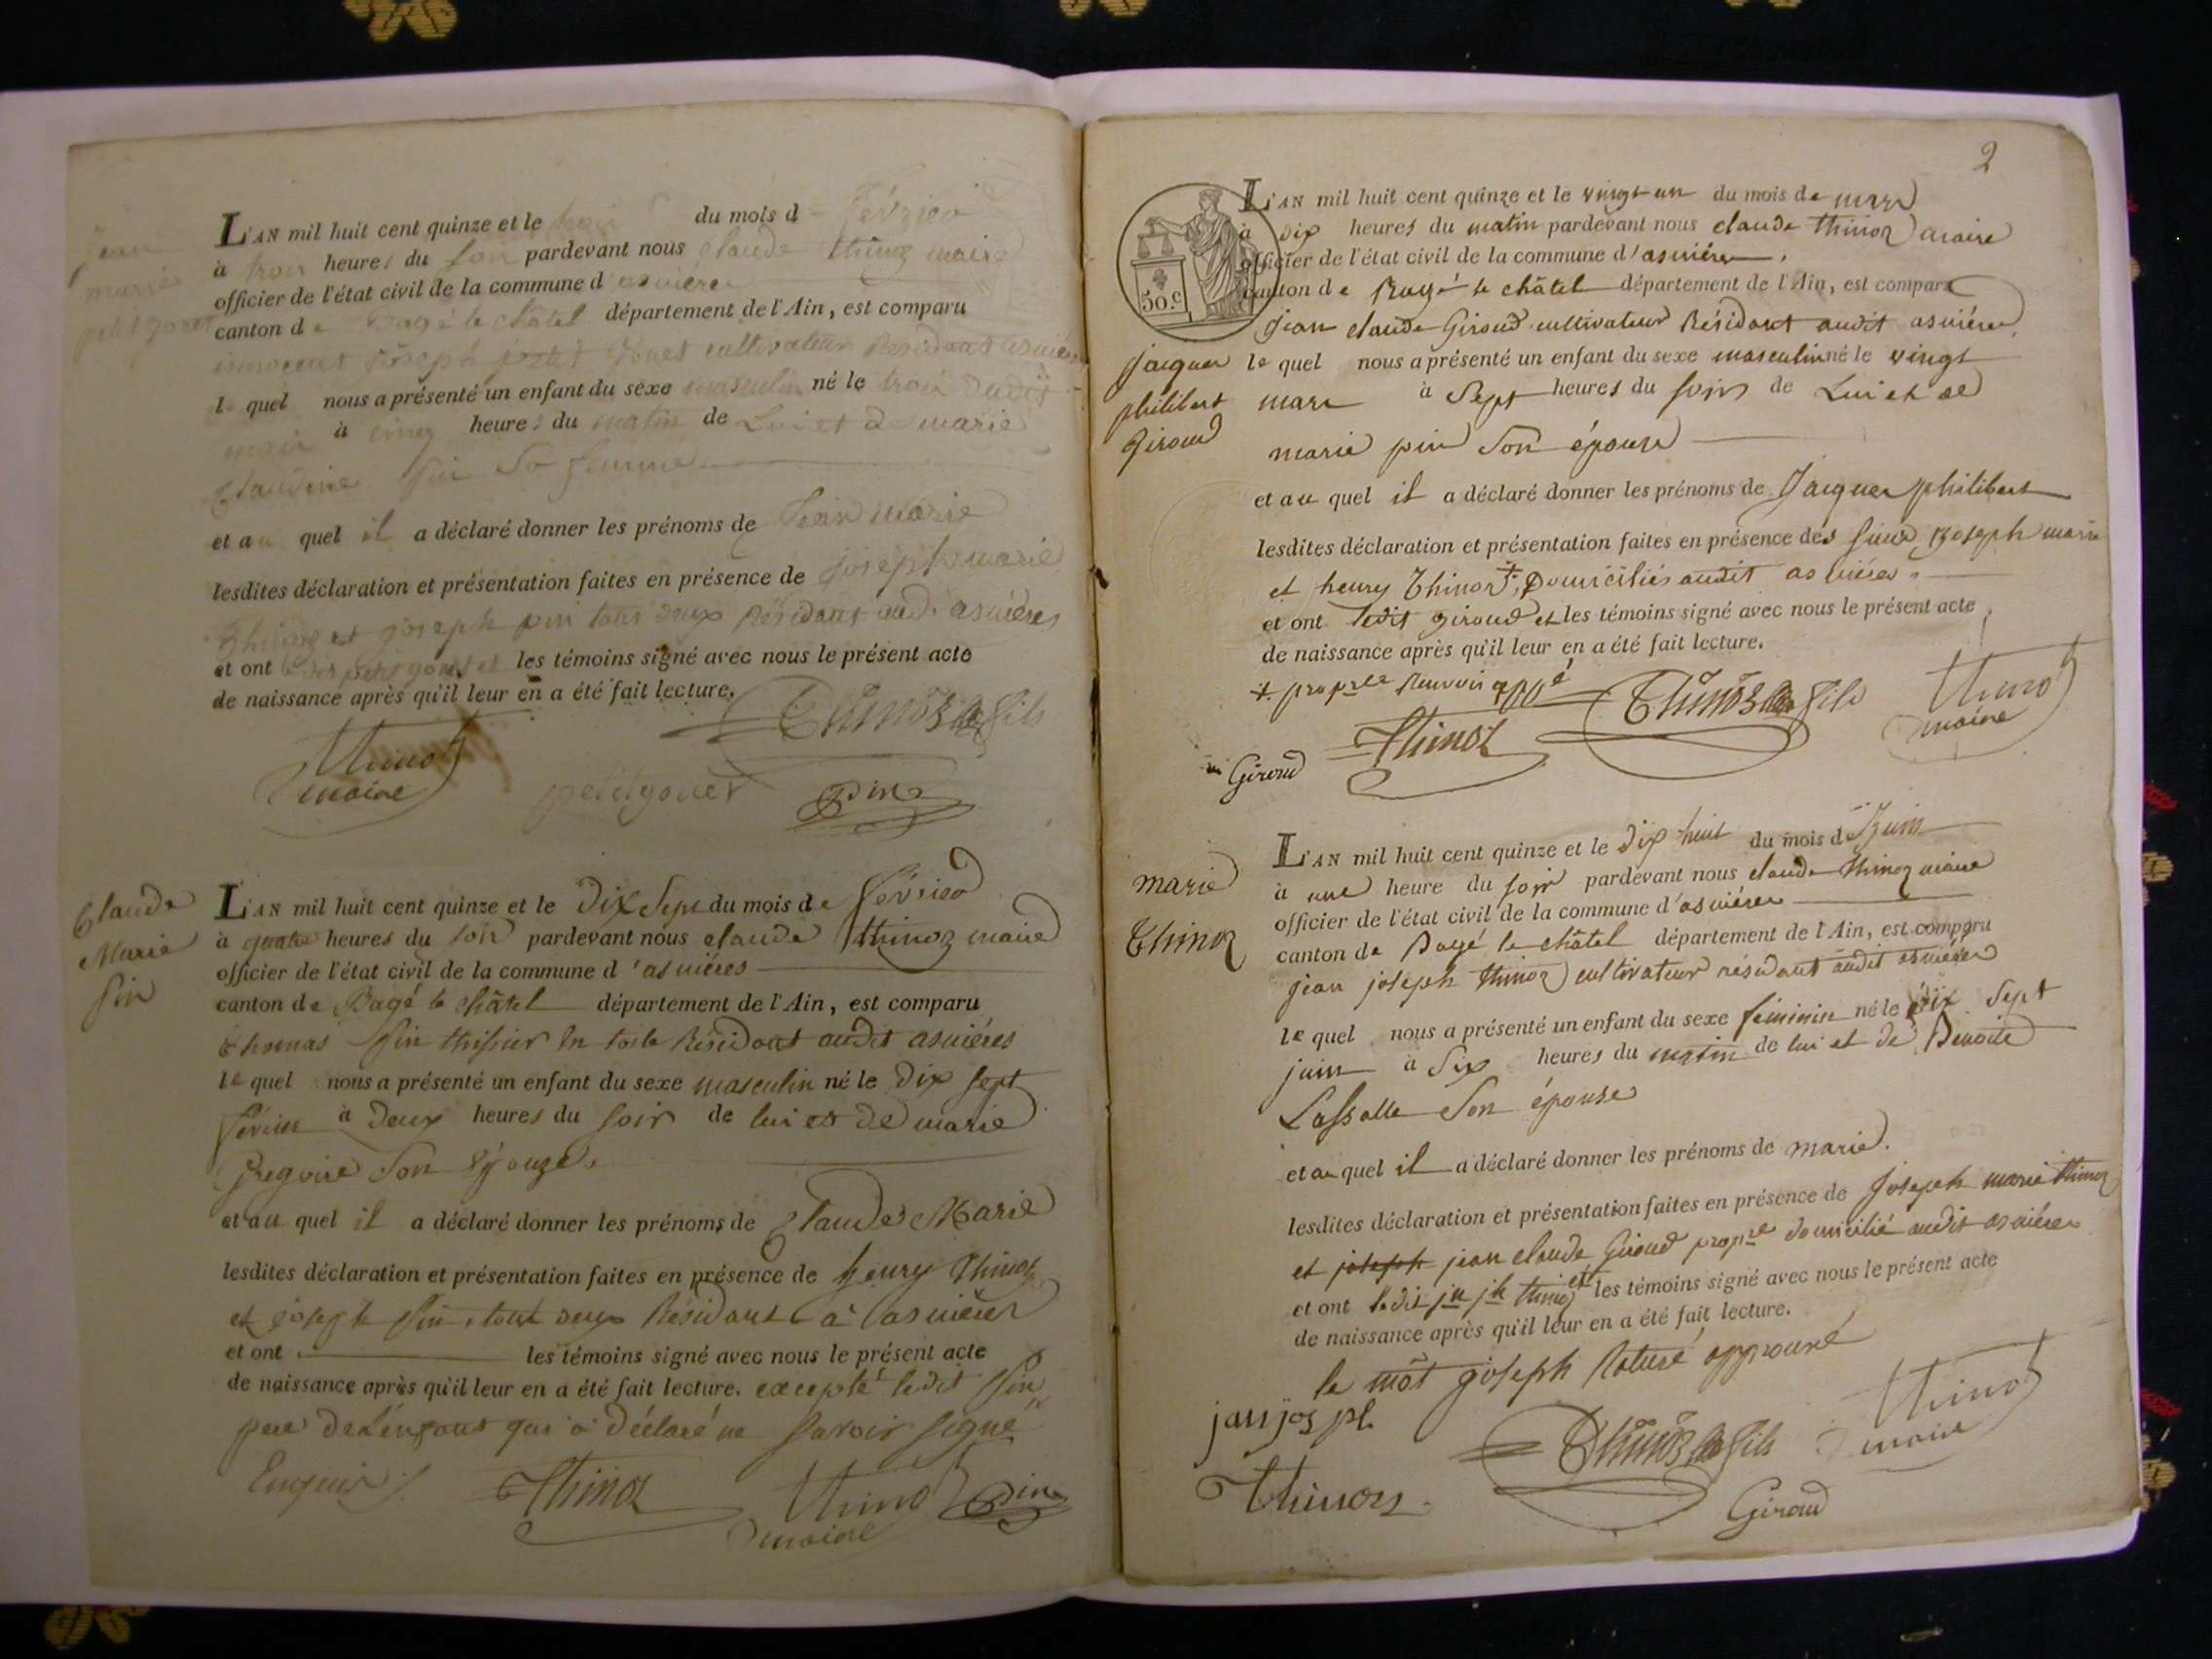 Jean
marie
petit gonet
L'AN mil huit cent quinze et le trois du mois de février
à trois heures du soir pardevant nous claude thinoz maire
officier de l'état civil de la commune d'asnières
canton de Bagé le châtel département de l'Ain, est comparu
joseph cultivateur Résidant
le quel nous a présenté un enfant du sexe masculin né le trois dudit
mois à cinq heures du matin de Lui et de marie
Claudine pin Sa femme
et au quel il a déclaré donner les prénoms de Jean marie
lesdites déclaration et présentation faites en présence de joseph marie
Thinoz et joseph pin tous deux Résidant audit asnières
et ont les témoins signé avec nous le présent acte
de naissance après qu'il leur en a été fait lecture.
Thinoz fils
Thinoz
maire
petitgonet
Pin
Claude
Marie
pin
L'AN mil huit cent quinze et le Dix Sept du mois de février
à quatre heures du soir pardevant nous claude thinoz maire
officier de l'état civil de la commune d'asnières
canton de Bagé le châtel département de l'Ain, est comparu
thomas pin thissier en toile Résidant audit asnières
le quel nous a présenté un enfant du sexe masculin né le dix sept
février à Deux heures du soir de lui et de marie
gregoire Son épouze.
et au quel il a déclaré donner les prénoms de Claude Marie
lesdites déclaration et présentation faites en présence de henry Thinoz
et joseph pin, tout deux Résidant à asnières
et ont les témoins signé avec nous le présent acte
de naissance après qu'il leur en a été fait lecture. excepté ledit pin
pere de L'enfant qui a déclaré ne savoir signé
Enquis
Thinoz
Thinoz
maire
Pin
2
50.c
L'AN mil huit cent quinze et le vingt un du mois de mars
à dix heures du matin pardevant nous claude thinoz maire
officier de l'état civil de la commune d'asnières
canton de Bagé le châtel département de l'Ain, est comparu
jean claude Giroud cultivateur Résidant audit asnières
jacques
philibert
Giroud
le quel nous a présenté un enfant du sexe masculin né le vingt
mars à Sept heures du soir de Lui et de
marie pin Son épouse
et au quel il a déclaré donner les prénoms de Jacques philibert
lesdites déclaration et présentation faites en présence des sieurs joseph marie
et henry Thinoz +, Domiciliés audit asnières.
et ont ledit giroud et les témoins signé avec nous le présent acte
de naissance après qu'il leur en a été fait lecture.
+ prop.res Renvoi app.é
Thinoz fils
Thinoz
maire
Thinoz
Giroud
marie
Thinoz
L'AN mil huit cent quinze et le dix huit du mois de Juin
à une heure du soir pardevant nous claude thinoz maire
officier de l'état civil de la commune d'asnières
canton de Bagé le châtel département de l'Ain, est comparu
jean joseph thinoz cultivateur résidant audit asnières
le quel nous a présenté un enfant du sexe féminin né le dix Sept
juin à Six heures du matin de lui et de Benoite
Lassalle Son épouse
et au quel il a déclaré donner les prénoms de marie.
lesdites déclaration et présentation faites en présence de joseph marie thinoz
et joseph jean claude Giroud prop.re domicilié audit asnières
et ont ledit jn jh thinoz et les témoins signé avec nous le présent acte
de naissance après qu'il leur en a été fait lecture.
le môt joseph Raturé approuvé
jan josph
Thinoz
Thinoz fils
Thinoz
maire
Giroud